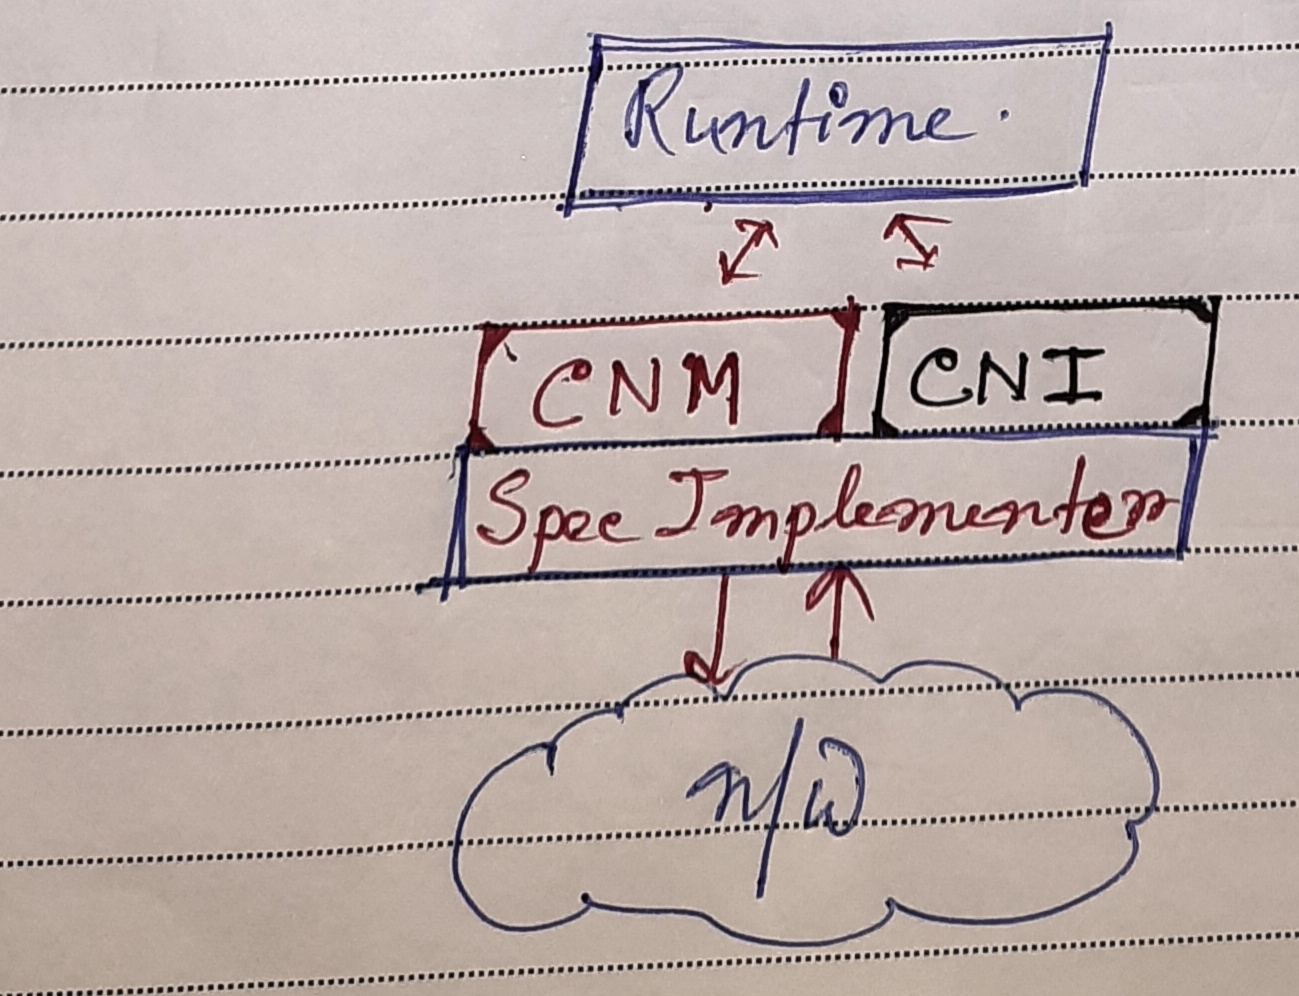 Runtime.
CNM
CNI
Spec Implementer
n/w